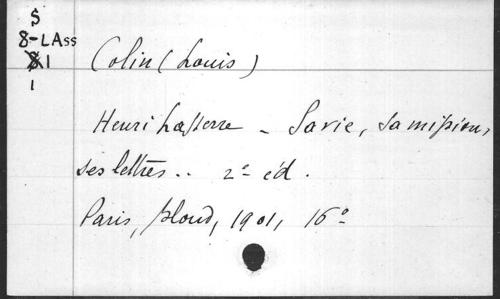 S
8-LAss
81
1
Colin (Louis)
Henri Lasserre - Sa vie, sa mission,
ses lettres.. 2e éd.
Paris, Bloud, 1901, 16°